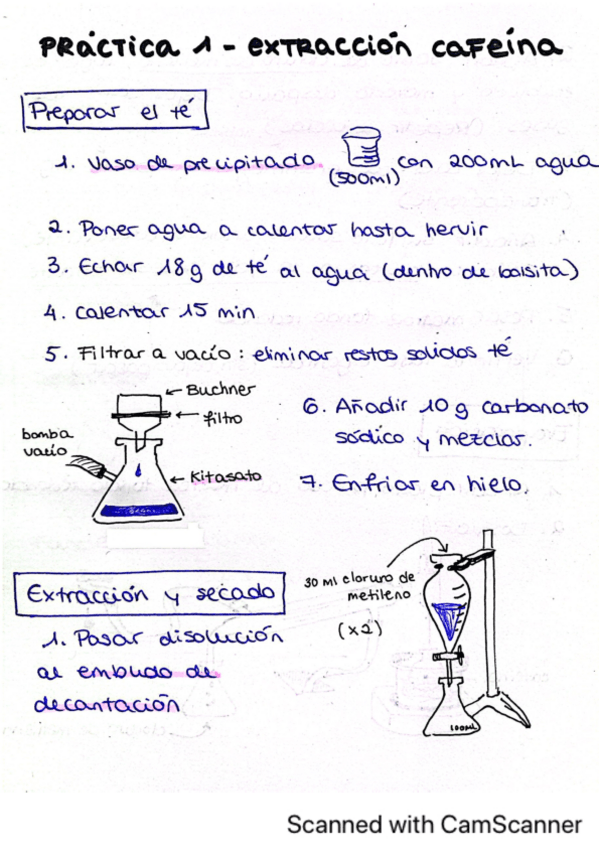 PRÁCTICA 1 - EXTRACCIÓN CAFEÍNA
Preparar el té
1. Vaso de precipitado. (500ml) con 200mL agua
2. Poner agua a calentar hasta hervir
3. Echar 18 g de té al agua (dentro de bolsita)
4. Calentar 15 min
5. Filtrar a vacío: eliminar restos solidos té
← Buchner
← filtro
bomba
vacío
← Kitasato
6. Añadir 10 g carbonato
sódico y mezclar.
7. Enfriar en hielo.
Extracción y secado
1. Pasar disolución
al embudo de
decantación
30 ml cloruro de
metileno
(x2)
100mL
Scanned with CamScanner